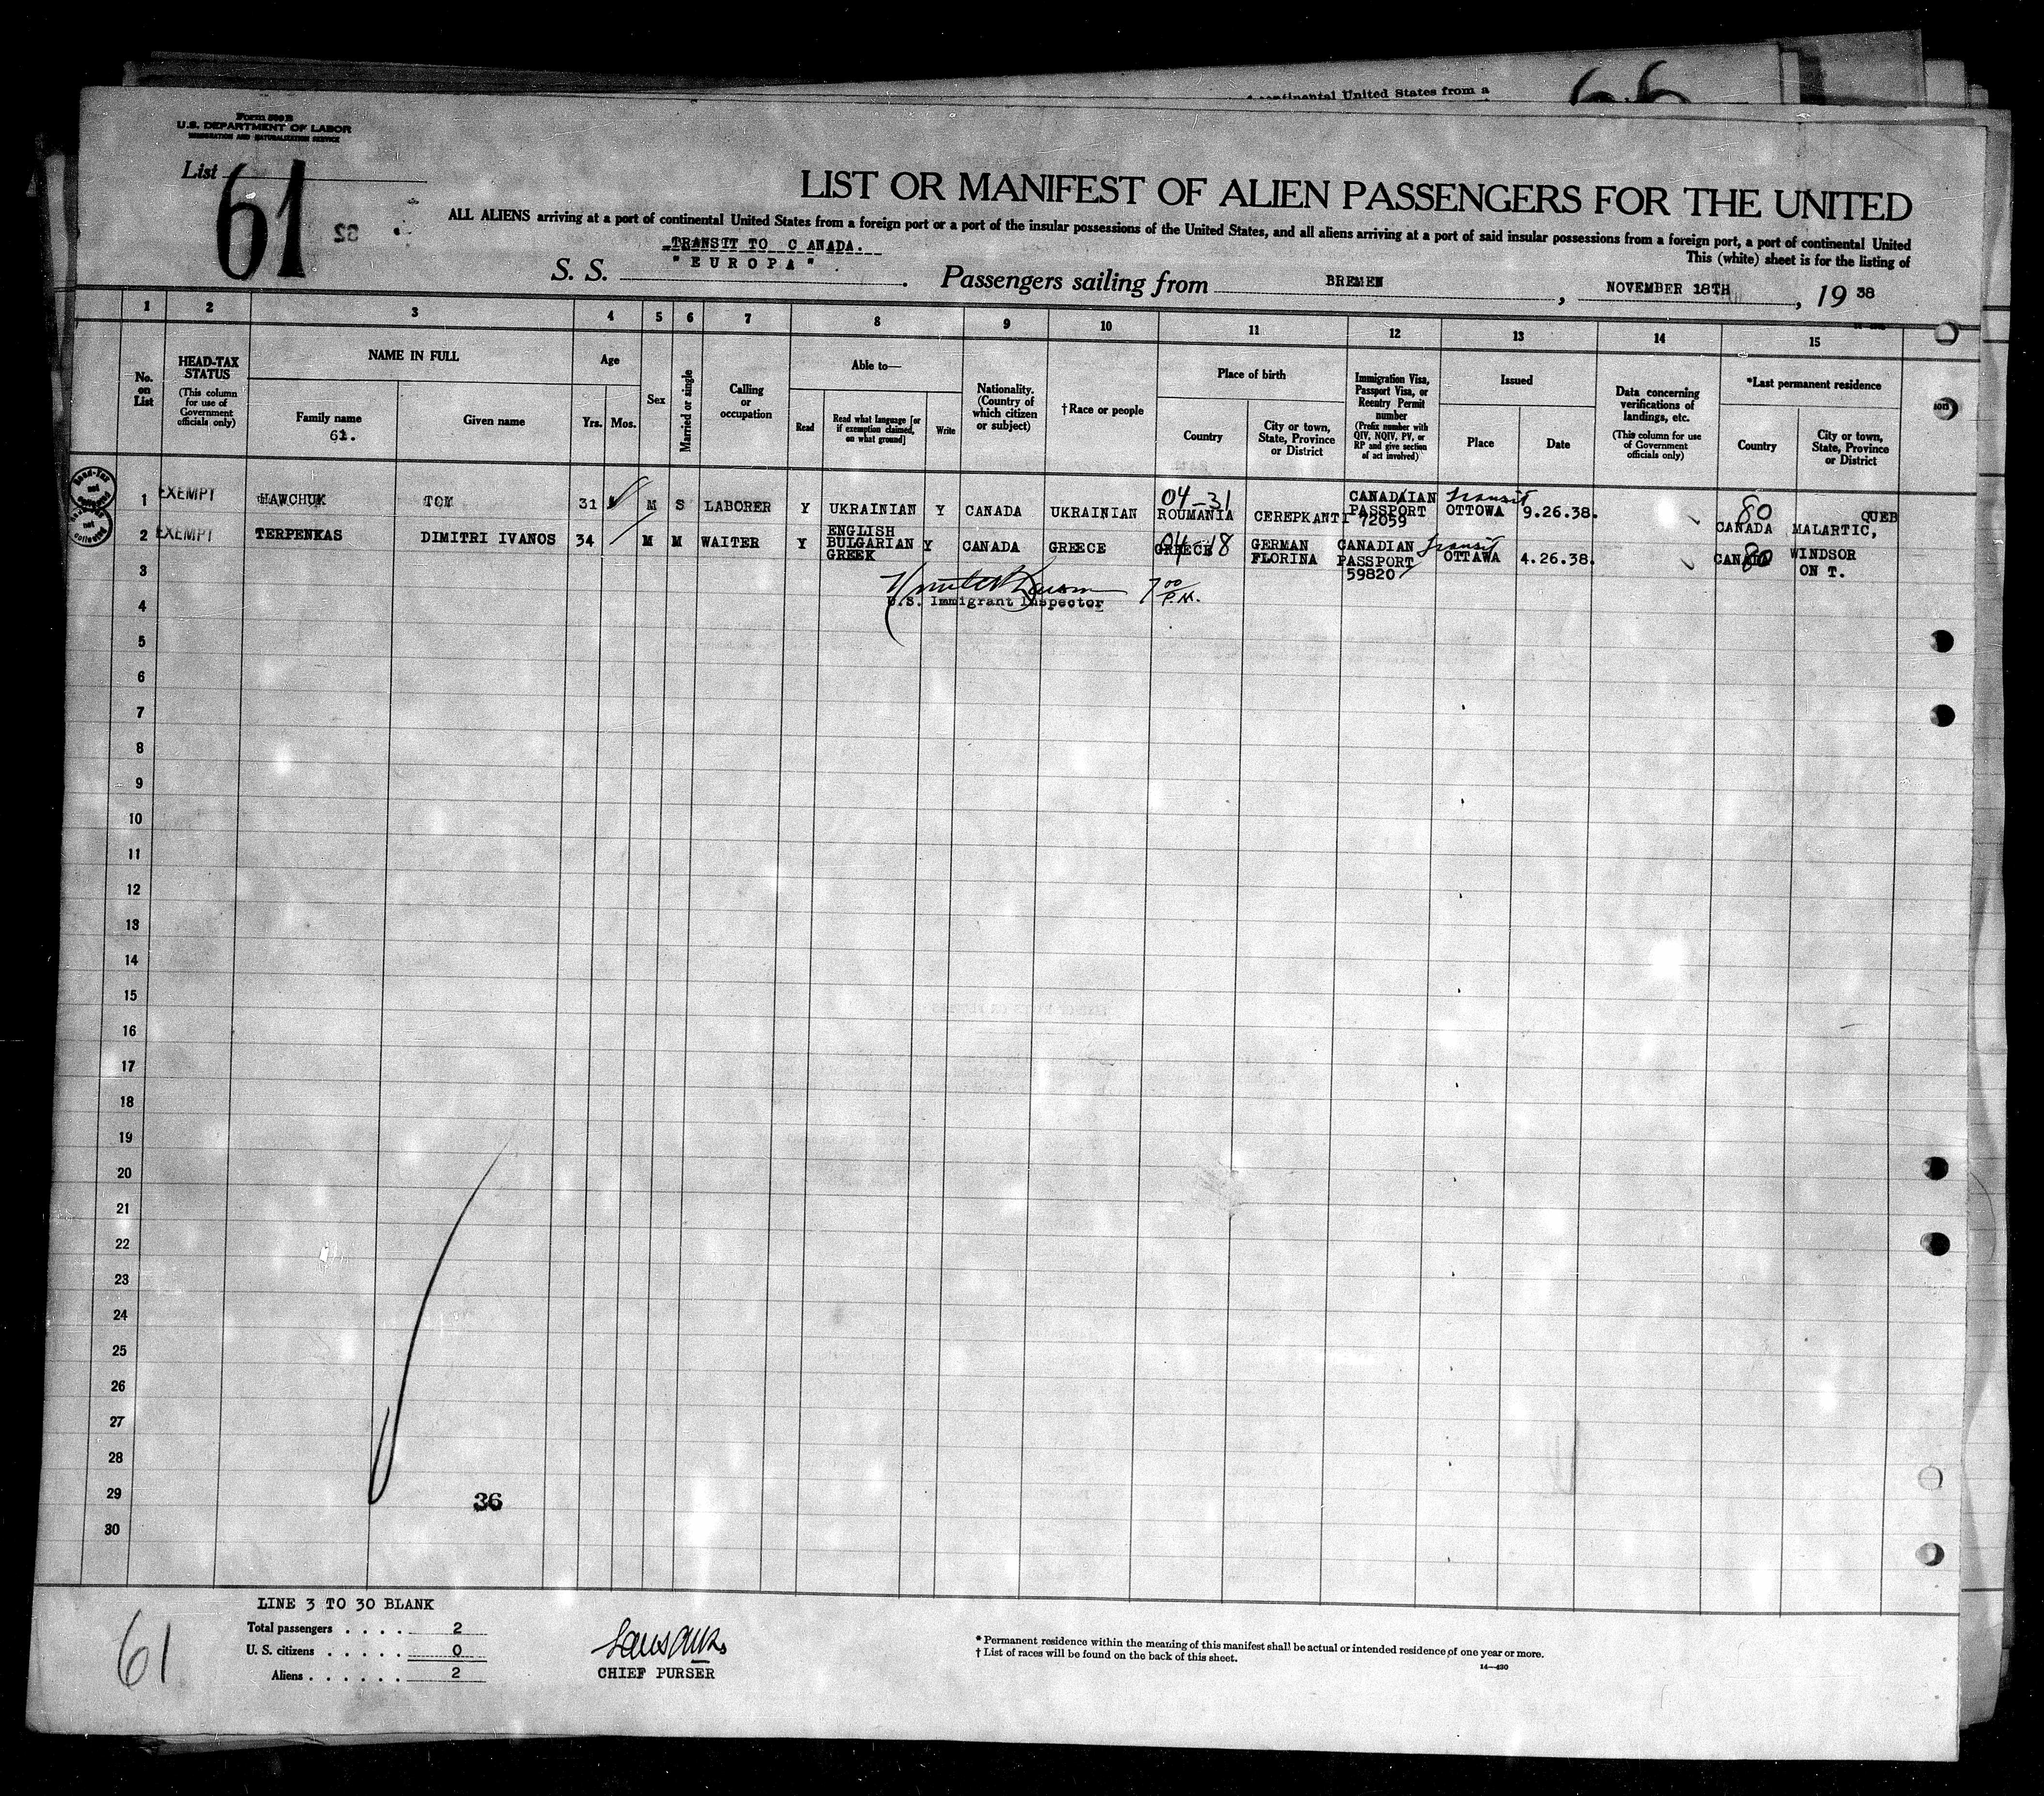 continental United States from a
66
Form 500 B
U.S. DEPARTMENT OF LABOR
IMMIGRATION AND NATURALIZATION SERVICE
List 61
LIST OR MANIFEST OF ALIEN PASSENGERS FOR THE UNITED
ALL ALIENS arriving at a port of continental United States from a foreign port or a port of the insular possessions of the United States, and all aliens arriving at a port of said insular possessions from a foreign port, a port of continental United
This (white) sheet is for the listing of
TRANSIT TO CANADA.
S. S. "EUROPA". Passengers sailing from BREMEN, NOVEMBER 18TH, 19 38
1 2 3 4 5 6 7 8 9 10 11 12 13 14 15
No. on List
HEAD-TAX STATUS (This column for use of Government officials only)
NAME IN FULL
Family name
61.
Given name
Age
Yrs. Mos.
Sex
Married or single
Calling or occupation
Able to—
Read
Read what language [or if exemption claimed, on what ground]
Write
Nationality. (Country of which citizen or subject)
†Race or people
Place of birth
Country
City or town, State, Province or District
Immigration Visa, Passport Visa, or Reentry Permit number (Prefix number with QIV, NQIV, PV, or RP and give section of act involved)
Issued
Place
Date
Data concerning verifications of landings, etc. (This column for use of Government officials only)
*Last permanent residence
Country
City or town, State, Province or District
Head-Tax not collected
1 EXEMPT HAWCHUK TOM 31 M S LABORER Y UKRAINIAN Y CANADA UKRAINIAN 04-31 ROUMANIA CEREPKANTI CANADAIAN PASSPORT 72059 Transit OTTOWA 9.26.38. 80 CANADA MALARTIC, QUEB
2 EXEMPT TERPENKAS DIMITRI IVANOS 34 M M WAITER Y ENGLISH BULGARIAN GREEK Y CANADA GREECE 04-18 GREECE GERMAN FLORINA CANADIAN PASSPORT 59820 Transit OTTAWA 4.26.38. 80 CANADA WINDSOR ON T.
3
U.S. Immigrant Inspector 7 00 P.M.
4
5
6
7
8
9
10
11
12
13
14
15
16
17
18
19
20
21
22
23
24
25
26
27
28
29
36
30
LINE 3 TO 30 BLANK
61
Total passengers . . . . 2
U. S. citizens . . . . . 0
Aliens . . . . . . 2
CHIEF PURSER
* Permanent residence within the meaning of this manifest shall be actual or intended residence of one year or more.
† List of races will be found on the back of this sheet.
14—430